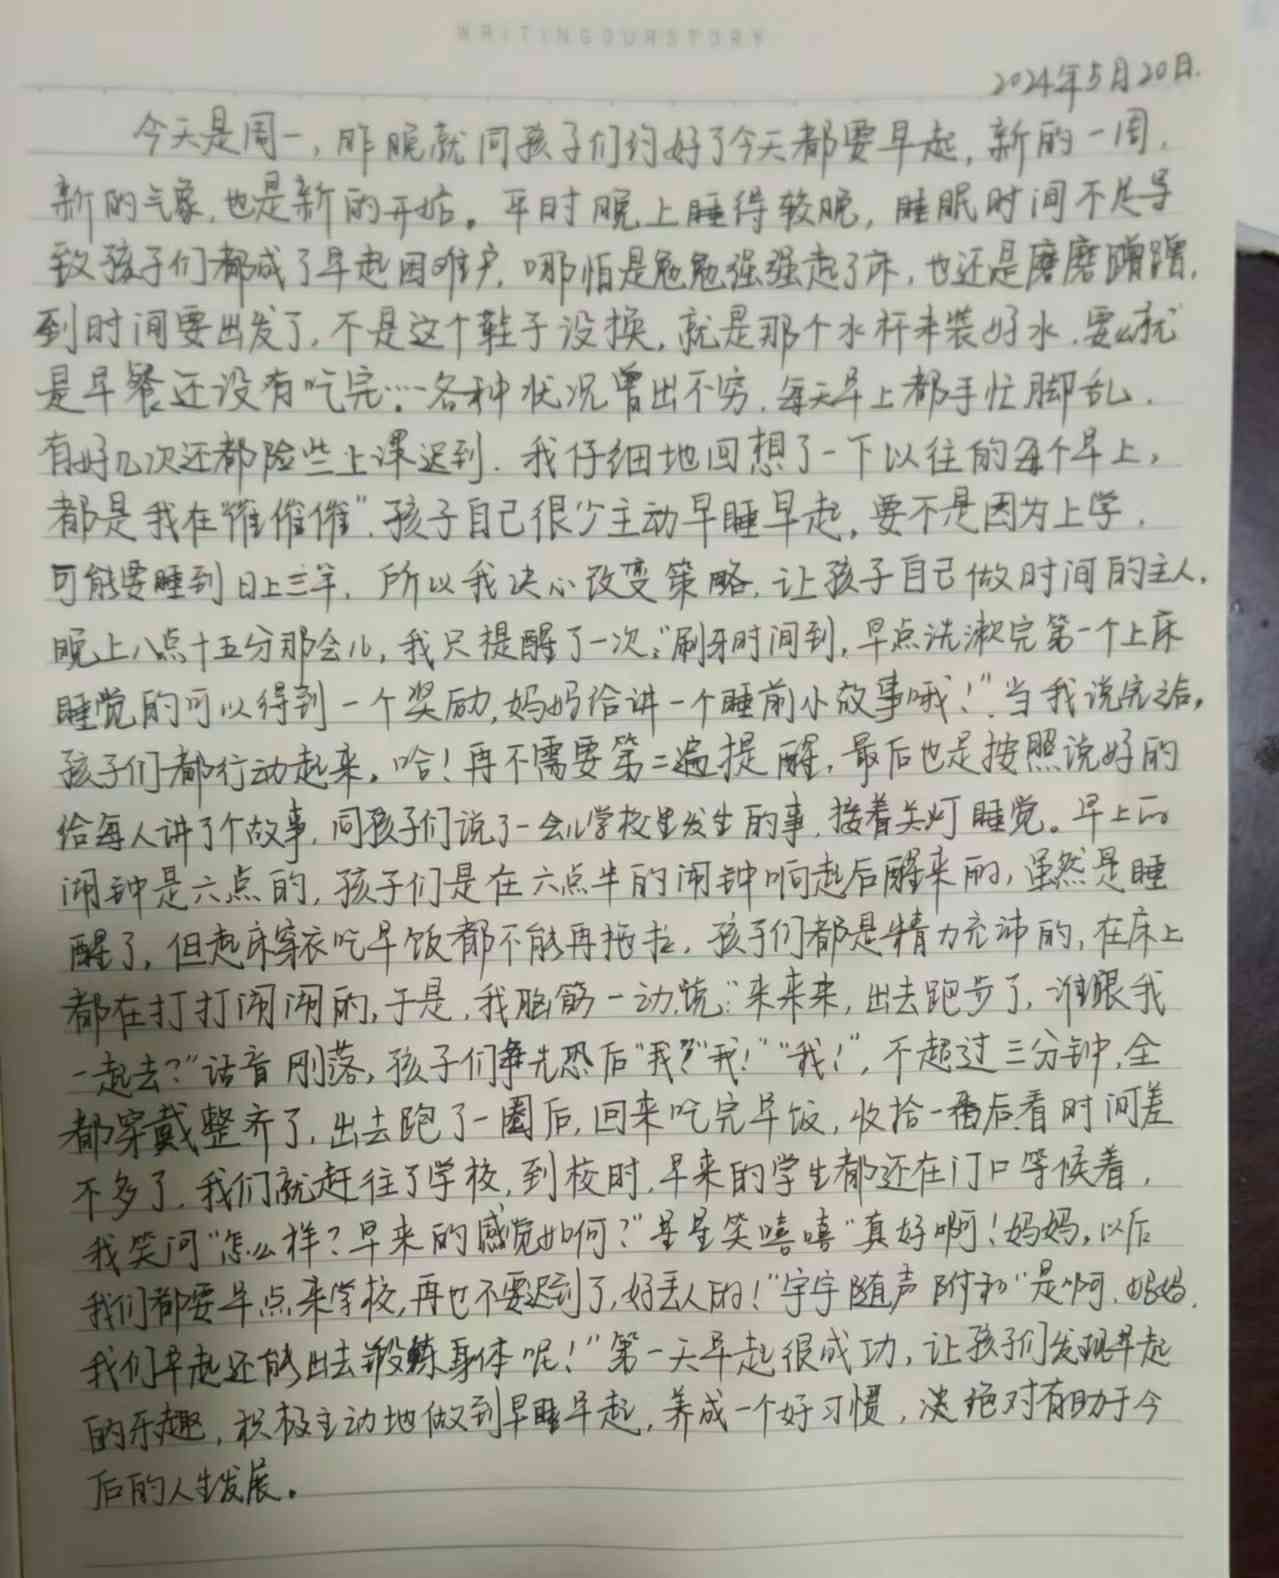 WRITINGOURSTORY
2024年5月20日.
今天是周一,昨晚就同孩子们约好了今天都要早起,新的一周,
新的气象,也是新的开始。平时晚上睡得较晚,睡眠时间不足导
致孩子们都成了早起困难户,哪怕是勉勉强强起了床,也还是磨磨蹭蹭,
到时间要出发了,不是这个鞋子没换,就是那个水杯未装好水,要么就
是早餐还没有吃完……各种状况曾出不穷,每天早上都手忙脚乱,
有好几次还都险些上课迟到.我仔细地回想了一下以往的每个早上,
都是我在“催催催”,孩子自己很少主动早睡早起,要不是因为上学,
可能要睡到日上三竿,所以我决心改变策略,让孩子自己做时间的主人,
晚上八点十五分那会儿,我只提醒了一次:“刷牙时间到,早点洗漱完第一个上床
睡觉的可以得到一个奖励,妈妈给讲一个睡前小故事哦!”当我说完之后,
孩子们都行动起来,哈!再不需要第二遍提醒,最后也是按照说好的
给每人讲了个故事,同孩子们说了一会儿学校里发生的事,接着关灯睡觉。早上的
闹钟是六点的,孩子们是在六点半的闹钟响起后醒来的,虽然是睡
醒了,但起床穿衣吃早饭都不能再拖拉,孩子们都是精力充沛的,在床上
都在打打闹闹的,于是,我脑筋一动,说:“来来来,出去跑步了,谁跟我
一起去?”话音刚落,孩子们争先恐后“我!”“我!”“我!”,不超过三分钟,全
都穿戴整齐了,出去跑了一圈后,回来吃完早饭,收拾一番后,看时间差
不多了,我们就赶往了学校,到校时,早来的学生都还在门口等候着,
我笑问“怎么样?早来的感觉如何?”星星笑嘻嘻“真好啊!妈妈,以后
我们都要早点来学校,再也不要迟到了,好丢人的!”宇宇随声附和“是啊,妈妈,
我们早起还能出去锻炼身体呢!”第一天早起很成功,让孩子们发现早起
的乐趣,积极主动地做到早睡早起,养成一个好习惯,绝对有助于今
后的人生发展。